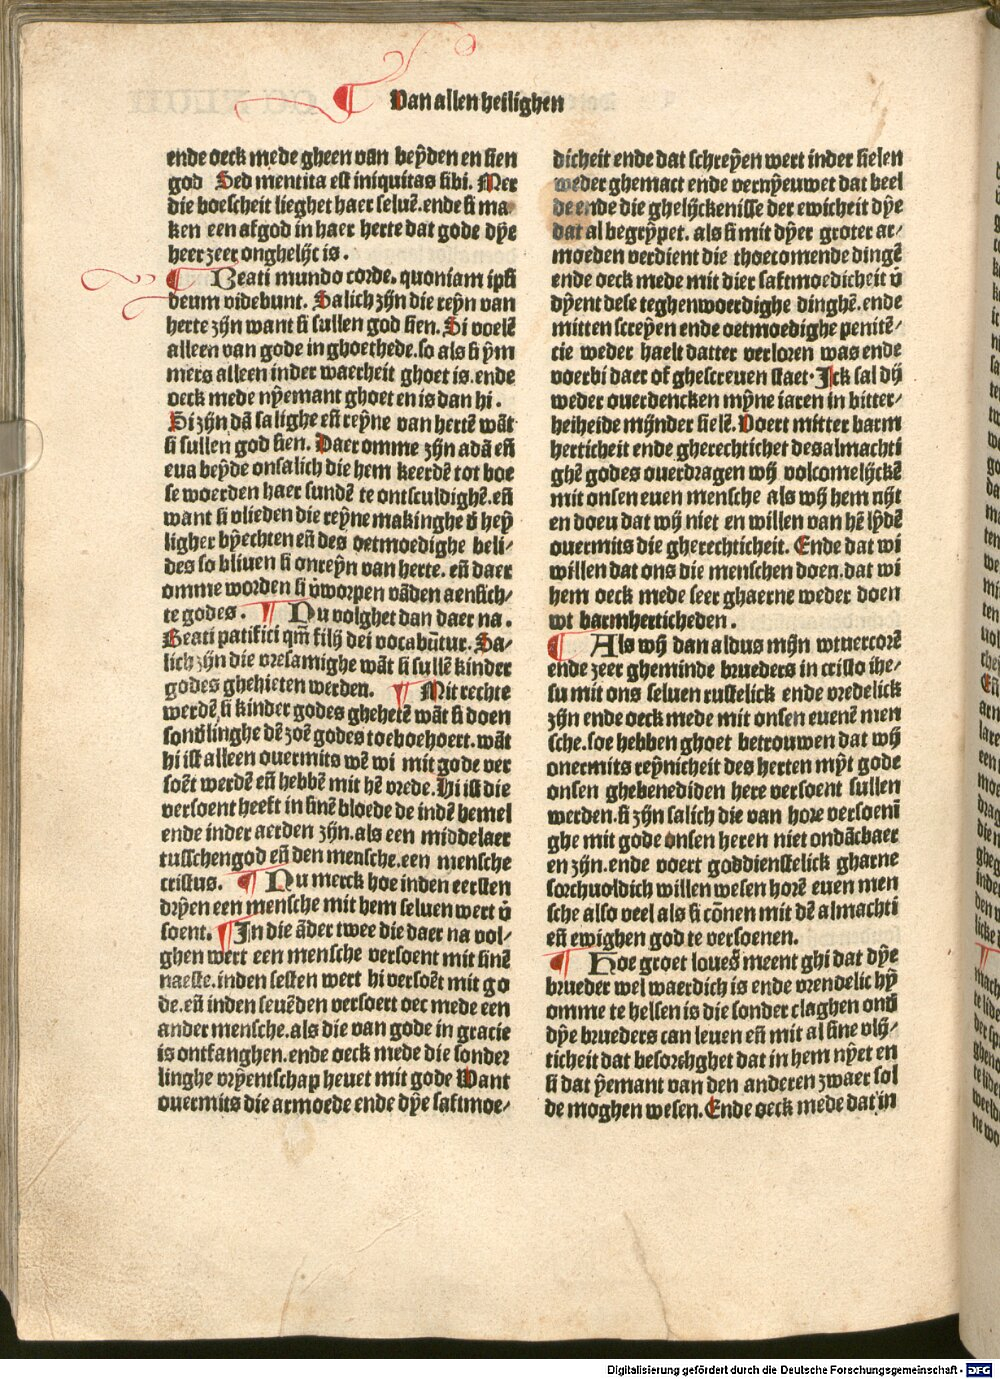 ¶ Van allen heilighen
ende oeck mede gheen van beÿden en sien
god Sed mentita est iniquitas sibi. Mer
die boescheit lieghet haer seluē. ende si ma
ken een afgod in haer herte dat gode dÿe
heer zeer onghelijc is.
¶ Beati mundo corde. quoniam ipsi
deum videbunt. Salich zijn die reyn van
herte zijn want si sullen god sien. Si voelē
alleen van gode in ghoethede. so als si ÿm
mers alleen inder waerheit ghoet is. ende
oeck mede nÿemant ghoet en is dan hi.
Si zijn dā salighe eñ reÿne van hertē wāt
si sullen god sien. Daer omme zijn adā eñ
eua beÿde onsalich die hem keerdē tot boe
se woerden haer sundē te ontsculdighē. eñ
want si vlieden die reÿne makinghe d̄ heÿ
ligher bÿechten eñ des oetmoedighe beli⸗
des so bliuen si onreÿn van herte. eñ daer
omme worden si v̄worpen vāden aensich⸗
te godes. ¶ Nu volghet dan daer na.
Beati patifici qm̄ filij dei vocabūtur. Sa⸗
lich zijn die vresamighe wāt si sullē kinder
godes ghehieten werden. ¶ Mit rechte
werdē si kinder godes ghehetē wāt si doen
sond̄linghe dē zoē godes toeboehoert. wāt
hi ist alleen ouermits wē wi mit gode ver
soēt werdē eñ hebbē mit hē vrede. Hi ist die
versoent heeft in sinē bloede de indē hemel
ende inder aerden zijn. als een middelaer
tusschengod eñ den mensche. een mensche
cristus. ¶ Nu merck hoe inden eersten
drÿen een mensche mit hem seluen wert v̄
soent. ¶ In die āder twee die daer na vol⸗
ghen wert een mensche versoent mit sinē
naeste. inden sesten wert hi versoēt mit go
de. eñ inden seuēden versoert oec mede een
ander mensche. als die van gode in gracie
is ontfanghen. ende oeck mede die sonder
linghe vrÿentschap heuet mit gode Want
ouermits die armoede ende dÿe saftmoe⸗
dicheit ende dat schreÿen wert inder sielen
weder ghemact ende vernÿeuwet dat beel
de ende die ghelÿckenisse der ewicheit dÿe
dat al begrÿpet. als si mit dÿer groter ar⸗
moeden verdient die thoecomende dingē
ende oeck mede mit dier saftmoedicheit v̄
dÿent dese teghenwoerdighe dinghē. ende
mitten screÿen ende oetmoedighe penitē⸗
cie weder haelt datter verloren was ende
voerbi daer of ghescreuen staet. Ick sal dÿ
weder ouerdencken mÿne iaren in bitter⸗
heiheide mÿnder sielē. Voert mitter barm
herticheit ende gherechtichet des almachti
ghē godes ouerdragen wÿ volcomelÿckē
mit onsen euen mensche als wÿ hem nÿt
en doeu dat wÿ niet en willen van hē lÿdē
ouermits die gherechticheit. Ende dat wi
willen dat ons die menschen doen. dat wi
hem oeck mede seer ghaerne weder doen
wt barmherticheden.
¶ Als wÿ dan aldus mÿn wtuercorē
ende zeer gheminde brueders in cristo ihe⸗
su mit ons seluen rustelick ende vredelick
zÿn ende oeck mede mit onsen euenē men
sche. soe hebben ghoet betrouwen dat wÿ
onermits reÿnicheit des herten mÿt gode
onsen ghebenediden here versoent sullen
werden. si zÿn salich die van hore versoenī
ghe mit gode onsen heren niet ondācbaer
en zÿn. ende voert goddienstelick gharne
sorchuoldich willen wesen horē euen men
sche also veel als si cōnen mit dē almachti
eñ ewighen god te versoenen.
¶ Hoe groet loues̄ meent ghi dat dÿe
brueder wel waerdich is ende vrendelic hÿ
omme te helsen is die sonder claghen ond̄
dÿe brueders can leuen eñ mit al sine vlÿ⸗
ticheit dat besorchghet dat in hem nÿet en
si dat ÿemant van den anderen zwaer sol
de moghen wesen. Ende oeck mede dat in
Digitalisierung gefördert durch die Deutsche Forschungsgemeinschaft - DFG